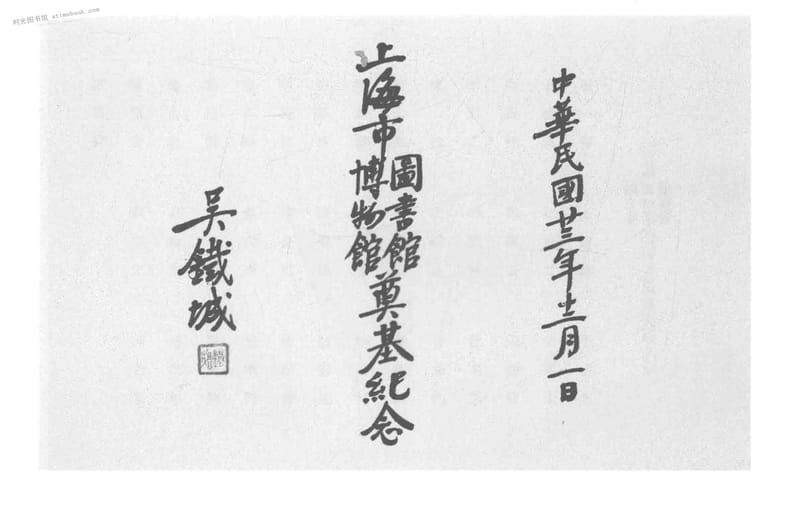 时光图书馆 atimebook.com
中華民國廿三年十二月一日
上海市
圖書館
博物館
奠基紀念
吳鐵城